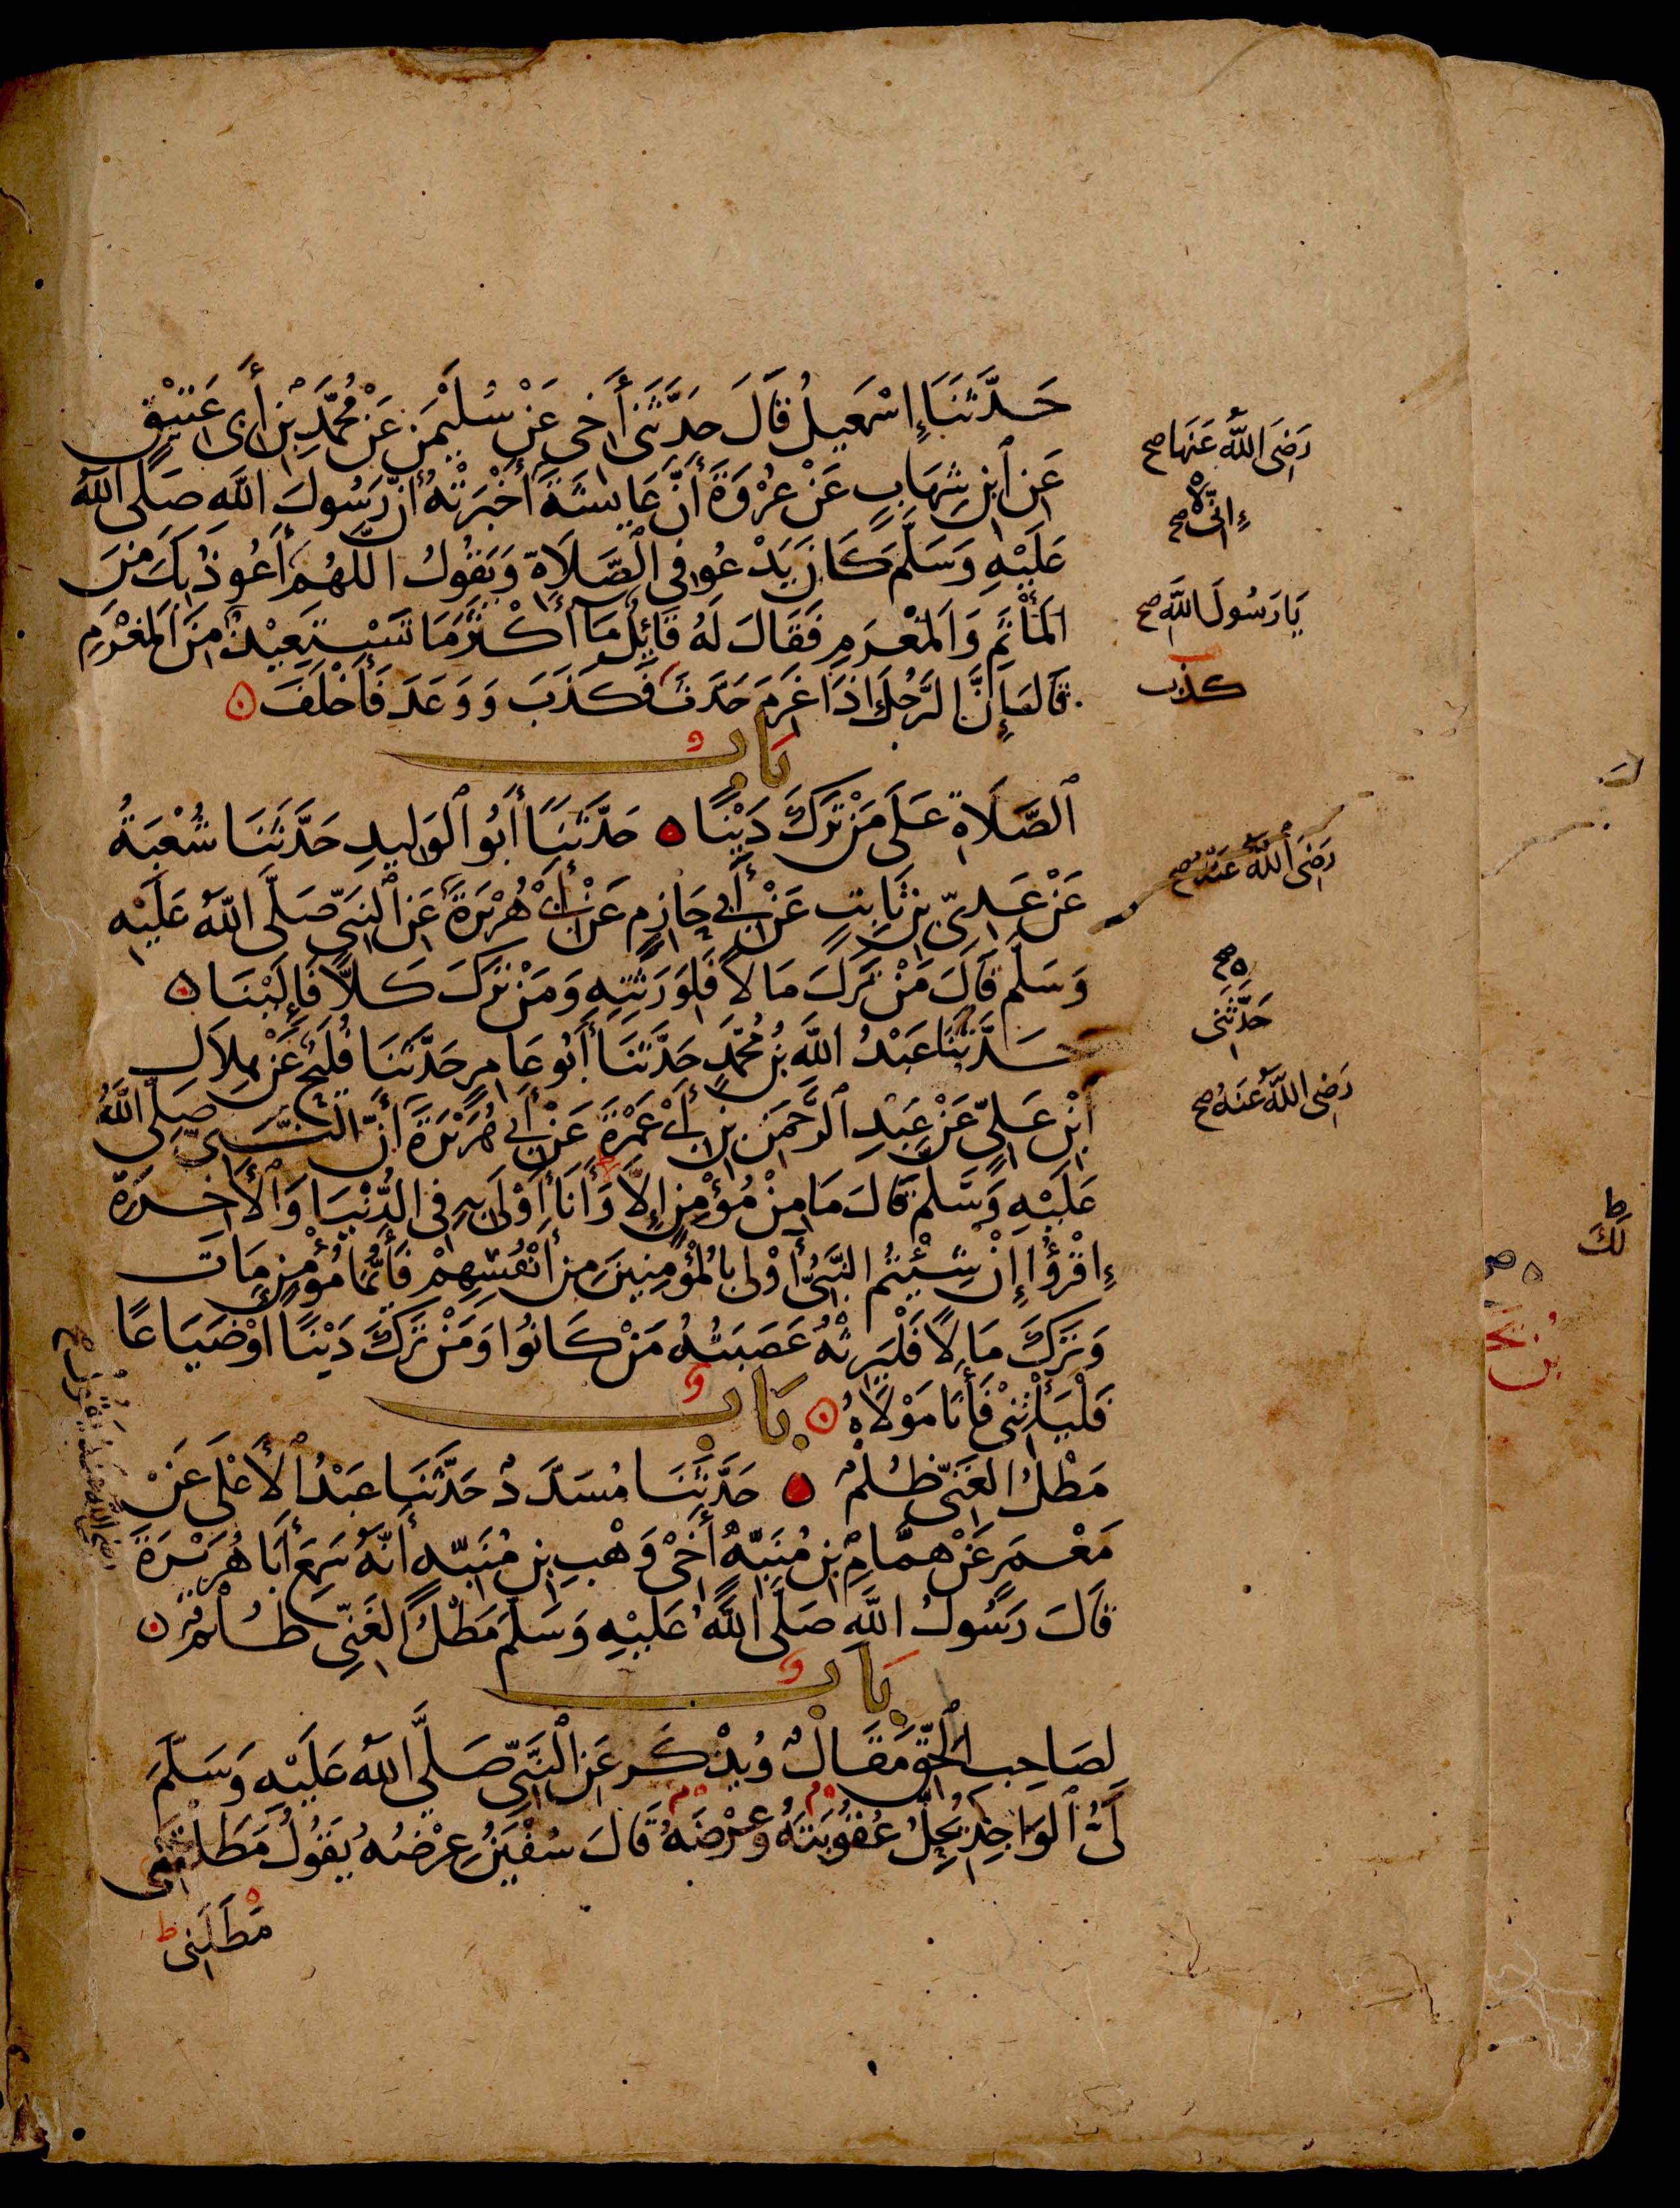 حَدَّثَنَا إِسْمَعِيلُ قَالَ حَدَّثَنِى أَخِى عَنْ سُلَيْمٰنَ عَنْ مُحَمَّدِ بْنِ أَبِى عَتِيْقٍ
عَنِ ابْنِ شِهَابٍ عَنْ عُرْوَةَ أَنَّ عَايِشَةَ أَخْبَرَتْهُ أَنَّ رَسُولَ اللَّهِ صَلَّى اللَّهُ
رَضِىَ اللَّهُ عَنْهَا صح
عَلَيْهِ وَسَلَّمَ كَانَ يَدْعُو فِى الصَّلَاةِ وَيَقُولُ اللَّهُمَّ أَعُوذُ بِكَ مِنَ
إِنِّى صح
الْمَأْثَمِ وَالْمَغْرَمِ فَقَالَ لَهُ قَائِلٌ مَا أَكْثَرَ مَا تَسْتَعِيْذُ مِنَ الْمَغْرَمِ
يَا رَسُولَ اللَّهِ صح
قَالَ إِنَّ الرَّجُلَ إِذَا غَرِمَ حَدَّثَ فَكَذَبَ وَوَعَدَ فَأَخْلَفَ
كذب
بَابُ
الصَّلَاةِ عَلَى مَنْ تَرَكَ دَيْنًا حَدَّثَنَا أَبُو الْوَلِيدِ حَدَّثَنَا شُعْبَةُ
عَنْ عَدِىِّ بْنِ ثَابِتٍ عَنْ أَبِى حَازِمٍ عَنْ أَبِى هُرَيْرَةَ عَنِ النَّبِىِّ صَلَّى اللَّهُ عَلَيْهِ
رَضِىَ اللَّهُ عَنْهُ صح
وَسَلَّمَ قَالَ مَنْ تَرَكَ مَالًا فَلِوَرَثَتِهِ وَمَنْ تَرَكَ كَلًّا فَإِلَيْنَا
حَدَّثَنَا عَبْدُ اللَّهِ بْنُ مُحَمَّدٍ حَدَّثَنَا أَبُو عَامِرٍ حَدَّثَنَا فُلَيْحٌ عَنْ هِلَالِ
صح حَدَّثَنِى
ابْنِ عَلِىٍّ عَنْ عَبْدِ الرَّحْمَنِ بْنِ أَبِى عَمْرَةَ عَنْ أَبِى هُرَيْرَةَ أَنَّ النَّبِىَّ صَلَّى اللَّهُ
رَضِىَ اللَّهُ عَنْهُ صح
عَلَيْهِ وَسَلَّمَ قَالَ مَا مِنْ مُؤْمِنٍ إِلَّا وَأَنَا أَوْلَى بِهِ فِى الدُّنْيَا وَالْأَخِرَةِ
اِقْرَؤُا إِنْ شِيْتُمُ النَّبِىُّ أَوْلَى بِالْمُؤْمِنِينَ مِنْ أَنْفُسِهِمْ فَأَيُّمَا مُؤْمِنٍ مَاتَ
وَتَرَكَ مَالًا فَلْيَرِثْهُ عَصَبَتُهُ مَنْ كَانُوا وَمَنْ تَرَكَ دَيْنًا أَوْ ضَيَاعًا
فَلْيَأْتِنِى فَأَنَا مَوْلَاهُ
بَابُ
مَطْلُ الْغَنِىِّ ظُلْمٌ حَدَّثَنَا مُسَدَّدٌ حَدَّثَنَا عَبْدُ الْأَعْلَى عَنْ
مَعْمَرٍ عَنْ هَمَّامِ بْنِ مُنَبِّهٍ أَخِى وَهْبِ بْنِ مُنَبِّهٍ أَنَّهُ سَمِعَ أَبَا هُرَيْرَةَ
قَالَ رَسُولُ اللَّهِ صَلَّى اللَّهُ عَلَيْهِ وَسَلَّمَ مَطْلُ الْغَنِىِّ ظُلْمٌ
بَابُ
لِصَاحِبِ الْحَقِّ مَقَالٌ وَيُذْكَر عَنِ النَّبِىِّ صَلَّى اللَّهُ عَلَيْهِ وَسَلَّمَ
لَىُّ الْوَاجِدِ يُحِلُّ عُقُوبَتَهُ وَعِرْضَهُ قَالَ سُفْيٰنُ عِرْضُهُ يَقُولُ مَطَلْتَنِى
مَطَلَنِى ط